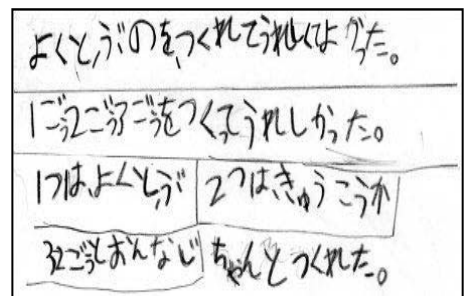 よくとぶのを、つくれてうれしくてよかった。
1ごう2ごう3ごうをつくってうれしかった。
1つは、よくとぶ
2つは、きゅうこうか
3ごうとおんなじ
ちゃんとつくれた。